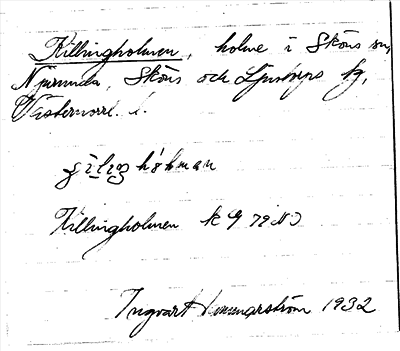 Killingholmen, holme i Sköns sn,
Njurunda, Sköns och Ljustorps tg,
Västernorrl. l.
Killingholmen k 9 79 NO
Ingvart Hemmarström 1932